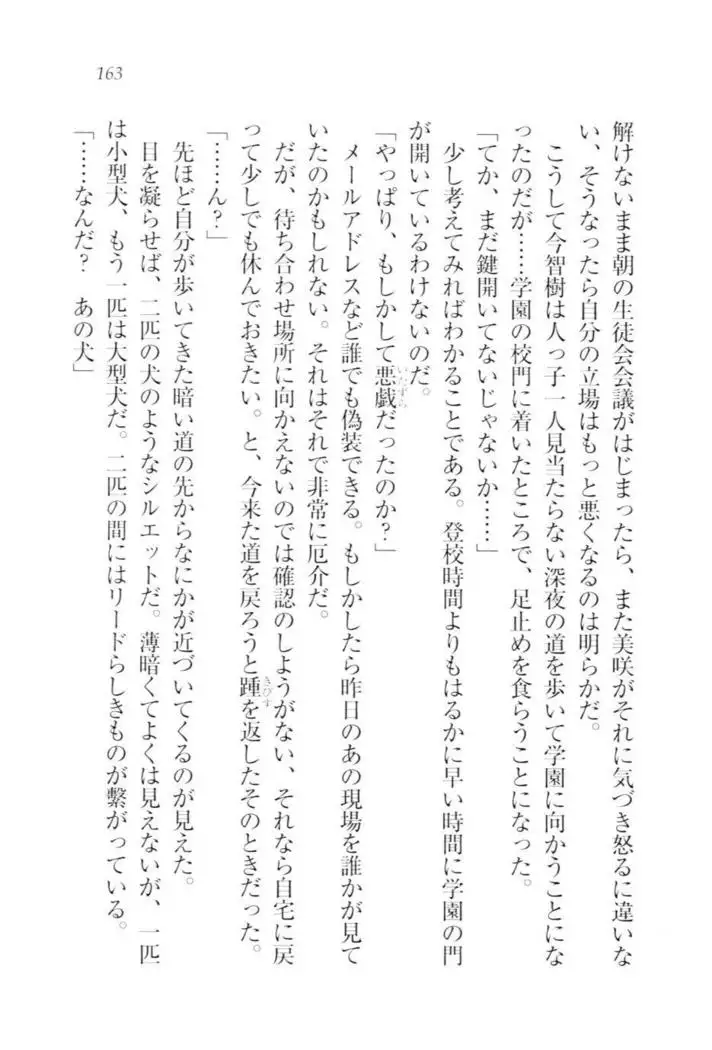 163
解けないまま朝の生徒会会議がはじまったら、また美咲がそれに気づき怒るに違いな
い、そうなったら自分の立場はもっと悪くなるのは明らかだ。
　こうして今智樹は人っ子一人見当たらない深夜の道を歩いて学園に向かうことにな
ったのだが……学園の校門に着いたところで、足止めを食らうことになった。
「てか、まだ鍵開いてないじゃないか……」
　少し考えてみればわかることである。登校時間よりもはるかに早い時間に学園の門
が開いているわけないのだ。
「やっぱり、もしかして悪戯だったのか？」
いたずら
　メールアドレスなど誰でも偽装できる。もしかしたら昨日のあの現場を誰かが見て
いたのかもしれない。それはそれで非常に厄介だ。
　だが、待ち合わせ場所に向かえないのでは確認のしようがない、それなら自宅に戻
って少しでも休んでおきたい。と、今来た道を戻ろうと踵を返したそのときだった。
きびす
「……ん？」
　先ほど自分が歩いてきた暗い道の先からなにかが近づいてくるのが見えた。
　目を凝らせば、二匹の犬のようなシルエットだ。薄暗くてよくは見えないが、一匹
は小型犬、もう一匹は大型犬だ。二匹の間にはリードらしきものが繋がっている。
「……なんだ？　あの犬」